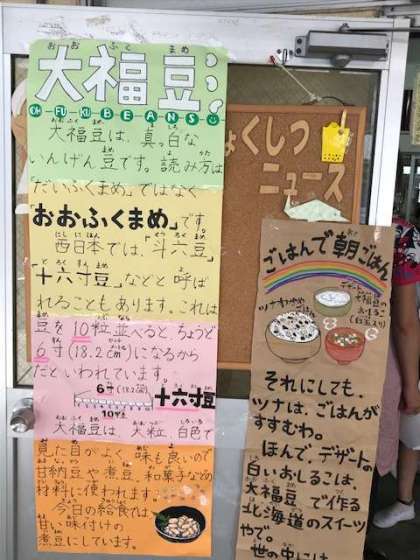 大福豆
OH-FU-KU BEANS
大福豆は、真っ白な
いんげん豆です。読み方は
「だいふくまめ」ではなく
「おおふくまめ」です。
西日本では、「斗六豆」
「十六寸豆」などと呼ば
れることもあります。これは
豆を10粒並べると、ちょうど
6寸(18.2cm)になるから
だといわれています。
6寸(18.2cm)
十六寸豆
10粒
大福豆は、大粒、白色で
見た目がよく、味も良いので
甘納豆や煮豆、和菓子などの
材料に使われます。
今日の給食では
甘い味付けの
煮豆にしています。
ょくしつ
ニュース
ごはんで朝ごはん
デザート
大福豆の
おしるこ
(白玉入り)
それにしても、
ツナは、ごはんが
すすむわ。
ほんで、デザートの
白いおしるこは、
大福豆で作る
北海道のスイーツ
やで。
世の中には